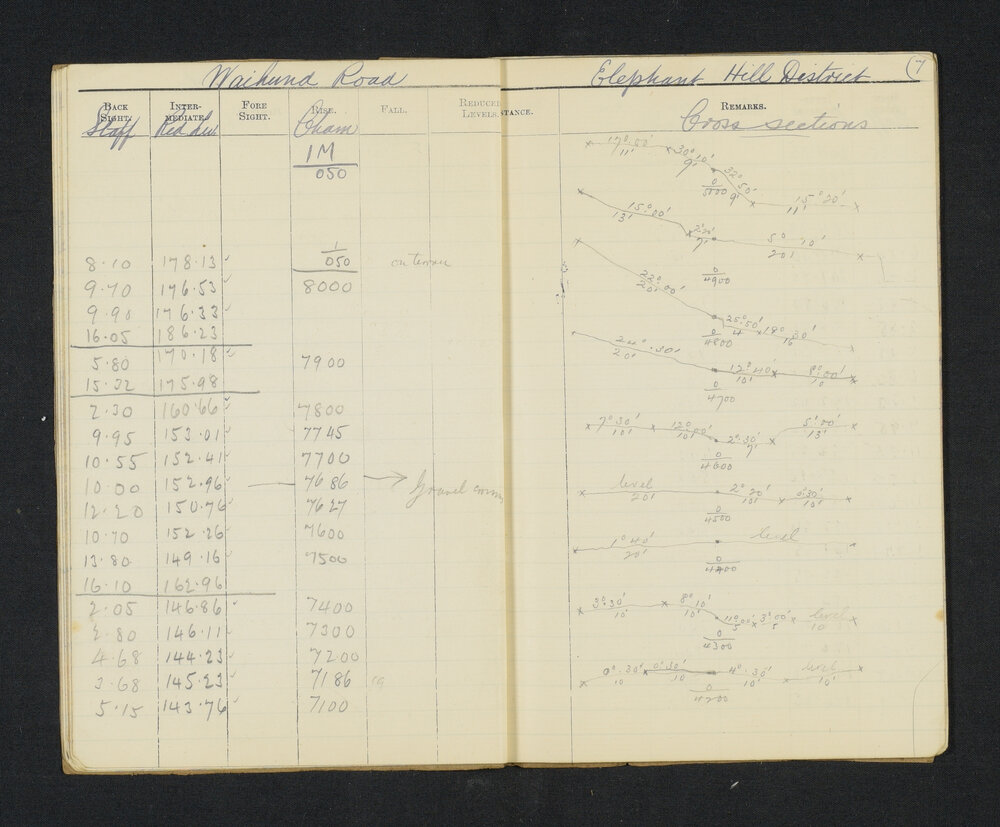 Waihund Road
BACK SIGHT. INTER-MEDIATE. FORE SIGHT. RISE. FALL. REDUCED LEVELS.
Staff Red. Lev Cham
1M
050
1
8·10 178·13 050 on terrace
9·70 176·53 8000
9·90 176·33
16·05 186·23
5·80 170·18 7900
15·32 175·98
2·30 160·66 7800
9·95 153·01 7745
10·55 152·41 7700
10·00 152·96 7686 Gravel
12·20 150·76 7627
10·70 152·26 7600
13·80 149·16 7500
16·10 162·96
2·05 146·86 7400
2·80 146·11 7300
4·68 144·23 7200
3·68 145·23 7186
5·15 143·76 7100
Elephant Hill District (7
STANCE. REMARKS.
Cross sections
17°·00' 30° 10' 32° 50' 15° 20'
11' 9' 9' 11'
0
5000
15°·00' 5° 10'
13' 7' 20'
0
4900
22°·00' 25°·50' 18° 30'
20' 4 16
0
4800
24°·30' 12°·40' 8°·00'
20' 10' 10
0
4700
7°·30' 12°·00' 2°·30' 5°·00'
10' 10' 7' 13'
0
4600
level 2°·20' 0°·30'
20' 10' 10'
0
4500
1°·40' level
20'
0
4400
3°·30' 8°·10' 11°·00' 3°·00' level
10' 10' 5 5 10'
0
4300
0°·30' 0°·30' 4°·30' level
10 10' 10' 10'
0
4200